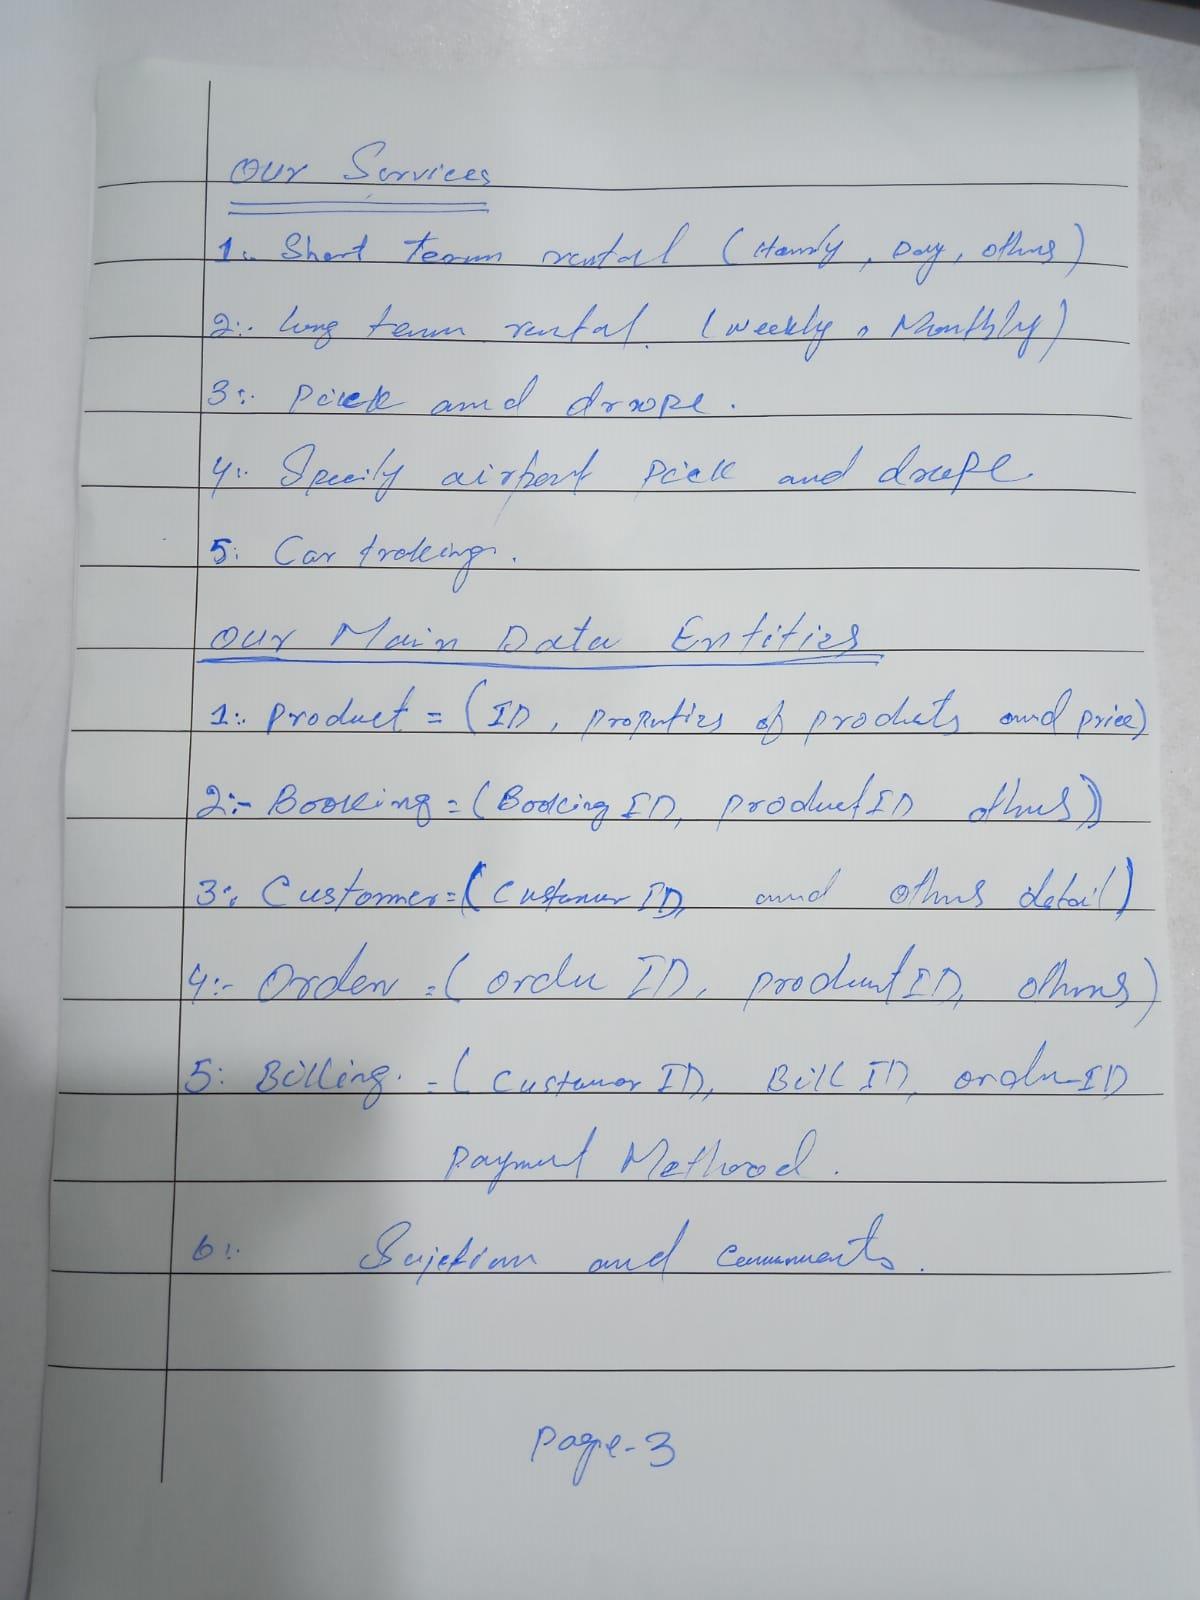 Our Services
1:- Short term rental (Hourly, Day, others)
2:- long term rental. (Weekly, Monthly)
3:- Pick and drope.
4:- airport Pick and drope
5: Car troking.
Our Main Data Entities
1:- Product = (ID, properties of products and price)
2:- Booking = (Booking ID, product ID others)
3:- Customer = (Customer ID, and others detail)
4:- Order = (order ID, product ID, others)
5: Billing. = (Customer ID, Bill ID, order ID
payment Methood.
6:- Sujetion and Comments.
Page-3